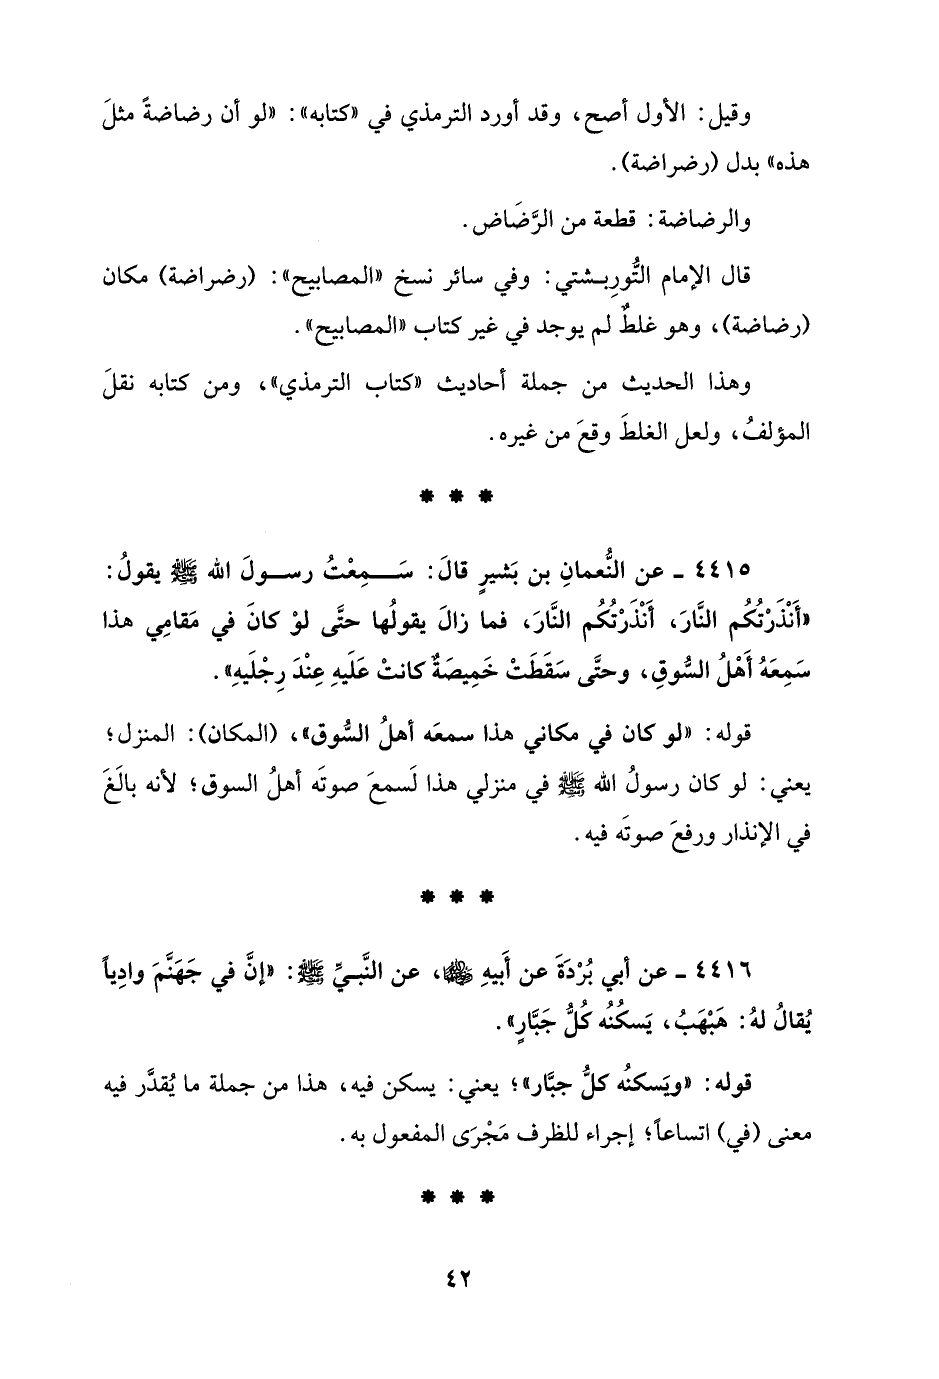 وقيل: الأول أصح، وقد أورد الترمذي في «كتابه»: «لو أن رضاضةً مثلَ
هذه» بدل (رضراضة).
والرضاضة: قطعة من الرَّضَاض.
قال الإمام التُّورِبشتي: وفي سائر نسخ «المصابيح»: (رضراضة) مكان
(رضاضة)، وهو غلطٌ لم يوجد في غير كتاب «المصابيح».
وهذا الحديث من جملة أحاديث «كتاب الترمذي»، ومن كتابه نقلَ
المؤلفُ، ولعل الغلطَ وقعَ من غيره.
* * *
٤٤١٥ ـ عن النُّعمانِ بن بَشيرٍ قالَ: سَــمِعْتُ رســولَ الله ﷺ يقولُ:
«أَنْذَرْتُكُم النَّارَ، أَنْذَرْتُكُم النَّارَ، فما زالَ يقولُها حتَّى لوْ كانَ في مَقامِي هذا
سَمِعَهُ أَهْلُ السُّوقِ، وحتَّى سَقَطَتْ خَمِيصَةٌ كانتْ عَلَيهِ عِنْدَ رِجْلَيهِ».
قوله: «لو كان في مكاني هذا سمعَه أهلُ السُّوق»، (المكان): المنزل؛
يعني: لو كان رسولُ الله ﷺ في منزلي هذا لَسمعَ صوتَه أهلُ السوق؛ لأنه بالَغَ
في الإنذار ورفعَ صوتَه فيه.
* * *
٤٤١٦ ـ عن أبي بُرْدَةَ عن أَبيهِ ﷺ، عن النَّبيِّ ﷺ: «إنَّ في جَهَنَّمَ وادِياً
يُقالُ لهُ: هَبْهَبُ، يَسكُنُه كُلُّ جَبَّارٍ».
قوله: «ويَسكنُه كلُّ جبَّار»؛ يعني: يسكن فيه، هذا من جملة ما يُقدَّر فيه
معنى (في) اتساعاً؛ إجراء للظرف مَجْرَى المفعول به.
* * *
٤٢